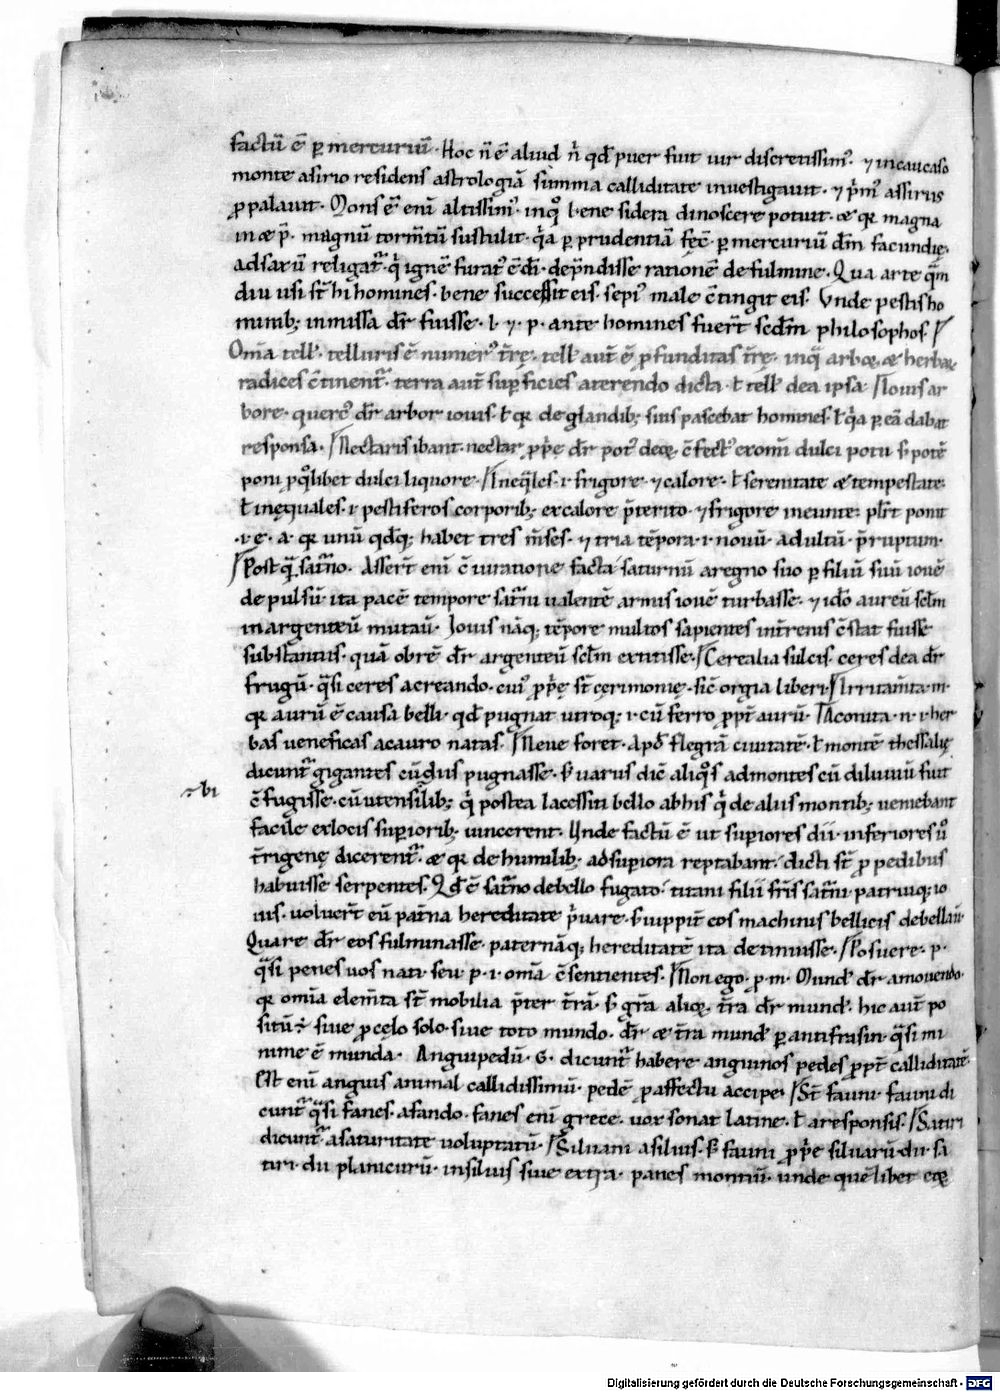 factū ē ꝑ mercuriū · Hoc n̄ ē aliud n̄ qđ puer fuit uir discretissim᷒ · ⁊ in caucaso
monte asirio residens astrologiā summa calliditate inuestigauit · ⁊ p̄m᷒ assirus
ꝓpalauit · Mons ē enī altissim᷒ · in q̊ bene sidera dinoscere potuit · æ qꝛ magna
inæ p̄ · magnū torm̄tū sustulit · q̓a ꝑ prudentiā · ꝑ mercuriū dm̄ facundię
ad saxū religat᷒ · q̓ ignē furat᷒ ē · dep̄ndisse rationē de fulmine · Qua arte q̄m
diu usi st̄ hi homines · bene successit eis · sepi᷒ male c̄tingit eis · Vnde pestis ho
minib; inmissa dr̄ fuisse · l · ⁊ · p · ante homines fuer̄t scđm philosophos /
Om̄a tell᷒ · telluris ē numer᷒ tr̄ę · tell᷒ aut̄ ē ꝓfunditas tr̄ę · in q̄ arboꝝ æ herbaꝝ
radices c̄tinent᷒ · terra aut̄ suꝑficies a terendo dicta · ł tell᷒ dea ipsa / Iouis ar
bore · querc᷒ dr̄ arbor iouis · ł qꝛ de glandib; suis pascebat homines · ł q̓a ꝑ eā dabat
responsa · / Nectaris ibant · nectar ꝓp̄e dr̄ pot᷒ deoꝝ c̄fect᷒ ex omī dulci potu s; potē
poni ꝓ q̊libet dulci liquore · / Ineq̄les · i · frigore · ⁊ calore · ł serenitate æ tempestate ·
ł inęquales · i · pestiferos corporib; ex calore p̄terito · ⁊ frigore ineunte · pl̄r̄t ponit
· ę · a · qꝛ unū qđq; habet tres m̄ses · ⁊ tria tēpora · i · nouū · adultū · p̄ruptum ·
/ Postq̄ sat̄no · Asser̄t enī c̄iuratione facta saturnū a regno suo ꝑ filiū suū iouē
depulsū · ita pacē tempore sat̄ni ualentē armis iouē turbasse · ⁊ idō aureū sclm̄
in argenteū mutaū · Iouis nāq; tēpore multos sapientes int̄renis c̄stat fuisse
substantiis · quā ob rē dr̄ argenteū sclm̄ extitisse · / Cerealia sulcis · ceres dea dr̄
frugū · q̄si ceres a creando · cui᷒ ꝓp̄e st̄ cęrimonię · sic̄ orgia liberi · / Irritam̄ta · m ·
qꝛ aurū ē causa belli · qđ pugnat utroq; · i · cū ferro ꝓpt̄ aurū · / Aconita · n · i · her
bas ueneficas a cauro natas · / Neue foret · Apđ flegrā ciuitatē · ł montē thessalię
dicunt᷒ gigantes cū diis pugnasse · s; uarus dic̄ aliq̊s ad montes cū diluuiū fuit
c̄fugisse · cū utensilib; q̓ postea lacessiti bello ab his q̓ de aliis montib; ueniebant
facile ex locis suꝑiorib; uincerent · Unde factū ē ut suꝑiores dii · inferiores u̅
t̄rigenę dicerent᷒ · æ qꝛ de humilib; ad suꝑiora reptabant · dicti st̄ ꝓ pedibus
habuisse serpentes · Qđ ē sat̄no de bello fugato · titani filii fr̄is sat̄ni · patriuq; io
uis · uoluer̄t eū pat̄na hereditate p̄uare · s; iuppit̄ eos machinis bellicis debellauit ·
Quare dr̄ eos fulminasse · paternāq; hereditatē ita detinuisse · / Posuere · p ·
q̄si penes uos nati · seu · p · i · om̄a c̄sentientes · / Non ego · p · m · Mund᷒ dr̄ a mouendo ·
qꝛ om̄ia elem̄ta st̄ mobilia p̄ter t̄rā · s; gr̄a alioꝝ t̄ra dr̄ mund᷒ · hic aut̄ po
situ᷒ ÷ siue ꝓ cęlo solo · siue toto mundo · dr̄ æ t̄ra mund᷒ ꝑ antifrasin · q̄si mi
nime ē munda · Anguipedū · G · dicunt᷒ habere anguinos pedes ꝓpt̄ calliditatē ·
Est enī anguis animal callidissimū · pedē ꝓ affectu accipe · / St̄ fauni · fauni di
cunt᷒ q̄si fanes · a fando · fanes enī grece · uox sonat latine · ł a responsis · / Satiri
dicunt᷒ a saturitate uoluptatū · / Siluani a siluis · s; fauni ꝓp̄e siluarū dii · sa
tiri · dii planicieū · in siluis siue extra · panes montiū · unde quēlibet eoꝝ